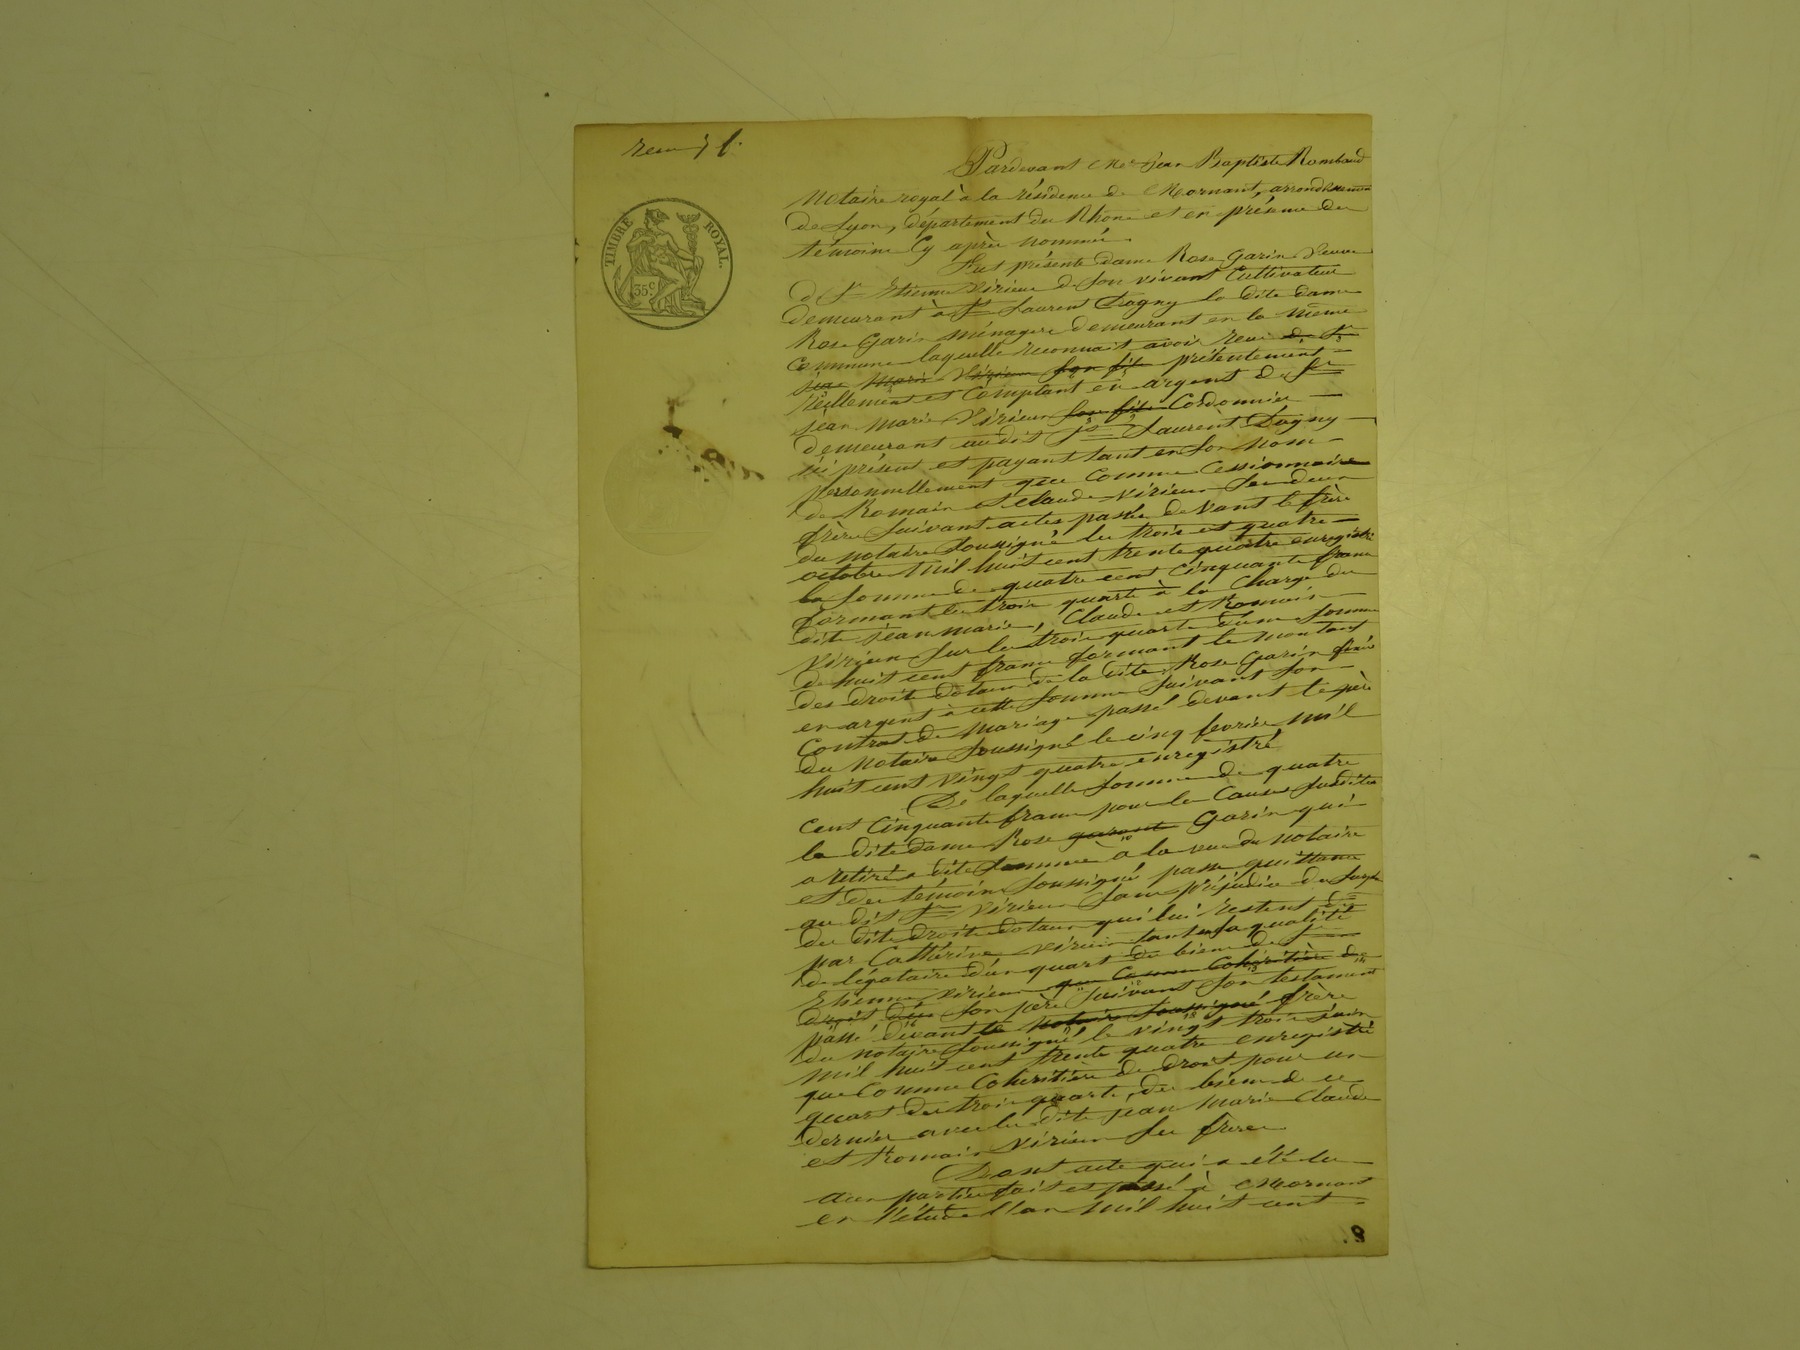 TIMBRE ROYAL.
35c
Pardevant Me Jean Baptiste Rambaud
Notaire royal à la résidence de Mornant, arrondissement
de Lyon, département du Rhone et en présence des
témoins Cy après nommés.
Fut présente dame Rose Garin Veuve
de Sr Etienne Virieux de son vivant Cultivateur
demeurant à St Laurent Dagny la dite dame
Rose Garin ménagère demeurant en la même
Commune laquelle reconnait avoir reçu de Sr
jean Marie Virieux son fils présentement
réellement et Comptant en argent de Sr
jean Marie Virieux son fils Cordonnier
demeurant au dit St Laurent Dagny
ici présent et payant tant en son nom
personnellement que Comme Cessionnaire
de Romain et Claude Virieux ses deux
frères suivant actes passés devant le frère
du notaire soussigné les trois et quatre
octobre mil huit cent trente quatre enregistrés
la somme de quatre cent cinquante francs
formant les trois quarts à la Charge des
dits jean marie, Claude et Romain
Virieux sur les trois quarts d'une somme
de huit cent francs formant le montant
des droits dotaux de la dite Rose Garin fixés
en argent à cette somme suivant son
Contrat de Mariage passé devant le père
du Notaire soussigné le cinq fevrier mil
huit cent vingt quatre enregistré
De laquelle somme de quatre
cent Cinquante francs pour les Causes susdites
la dite dame Rose Garin qui
a retiré dite somme à la vue du notaire
et des témoins soussignés passe quittance
au dit Sr Virieux sans préjudice du surplus
des dits droits dotaux qui lui restent dus
par Cathérine Virieux tant en sa qualité
de légataire d'un quart des biens de Sr
Etienne Virieux que Comme Cohéritière de
droit des son père suivant son testament
passé devant le notaire soussigné frère
du notaire soussigné le vingt trois juin
mil huit cent trente quatre enregistré
que Comme Cohéritière de droit pour un
quart des trois quarts des biens de ce
dernier avec les dits jean Marie Claude
et Romain Virieux ses frères
Dont acte qui a été lu
aux parties fait et passé à Mornant
en l'étude l'an mil huit cent
8.